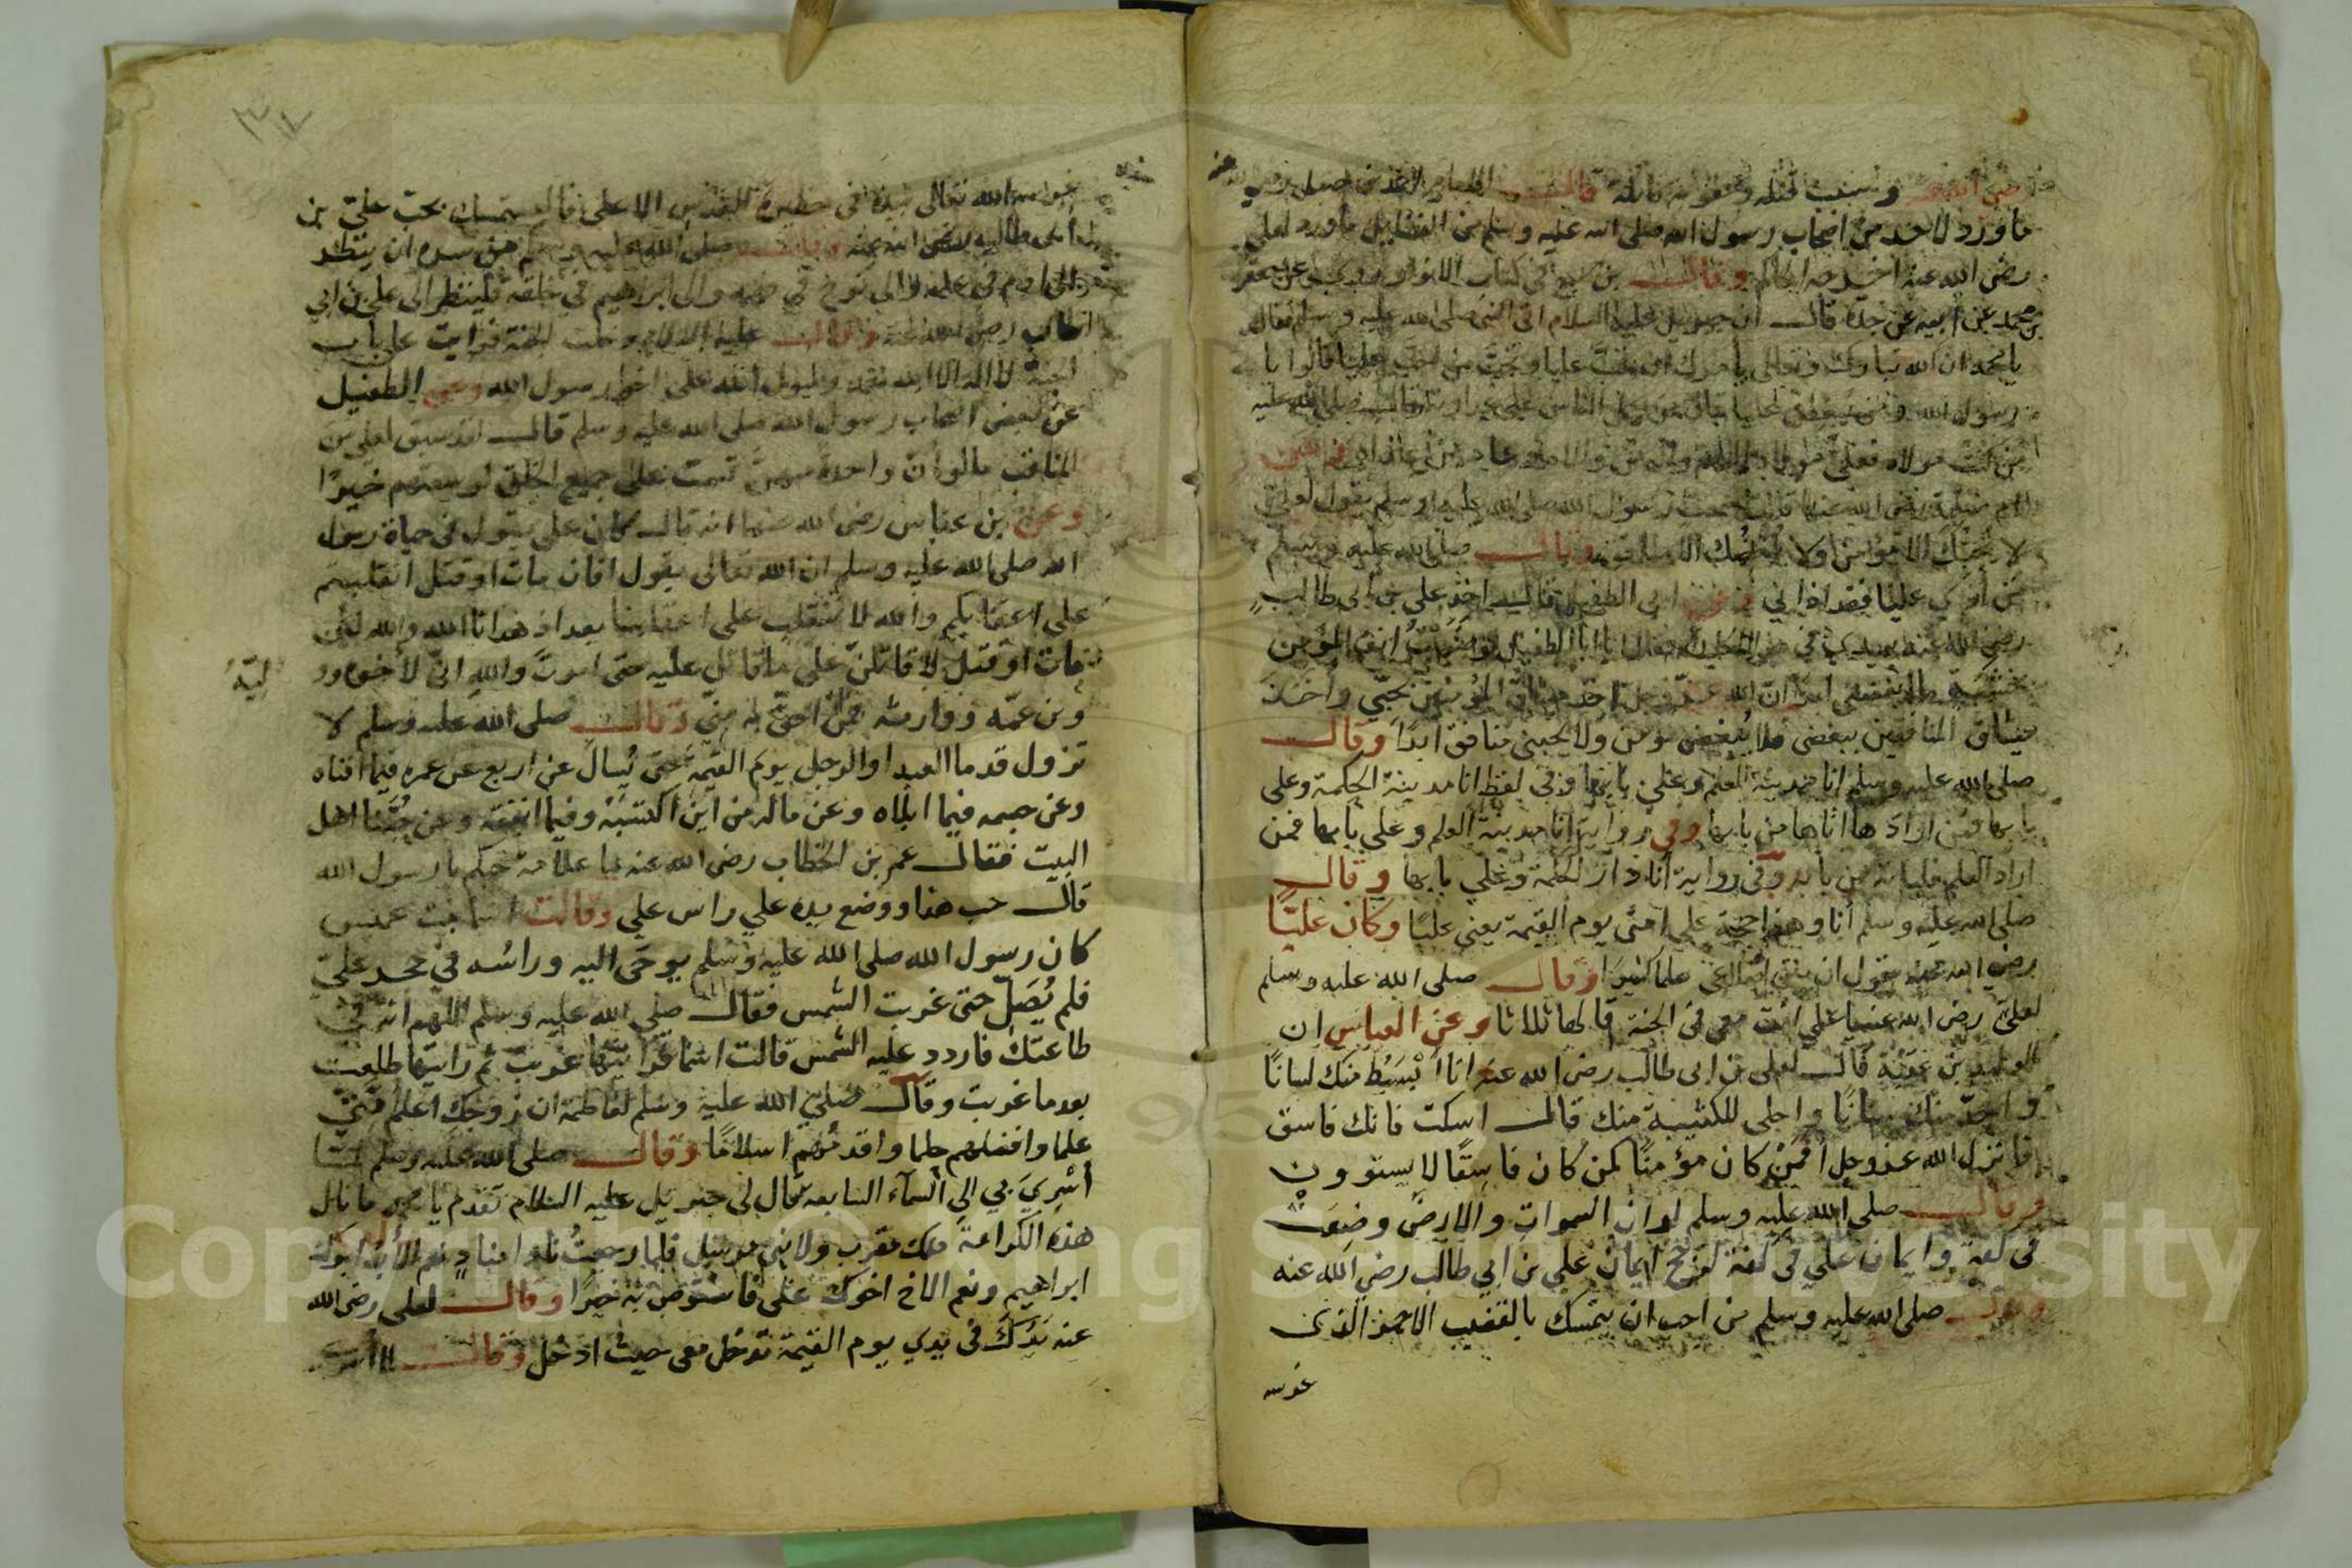 رضي الله عنه وسبب قتله وعقوبة قاتله قال الامام احمد بن حنبل رضي الله عنه
ما ورد لاحد من اصحاب رسول الله صلى الله عليه وسلم من الفضايل ما ورد لعلي
رضي الله عنه اخرجه الحاكم وقال بن سبع في كتاب
بن محمد عن ابيه عن جده قال ان جبريل عليه السلام اتى النبي صلى الله عليه وسلم فقال
يا محمد ان الله تبارك وتعالى يامرك ان تحب عليا وتحب من احب عليا قالوا يا
رسول الله ومن يبغض عليا قال من صلى الله عليه
من كنت مولاه فعلي مولاه اللهم وال من والاه وعاد من عاداه وعن
ام سلمة رضي الله عنها قالت سمعت رسول الله صلى الله عليه وسلم يقول لعلي
لا يحبك الا مؤمن ولا يبغضك الا منافق وقال صلى الله عليه وسلم
من اذى عليا فقد اذاني وعن ابي الطفيل قال اخذ علي بن ابي طالب
رضي الله عنه بيدي في فقال يا ابا الطفيل لو ضربت انف المؤمن
بخشبة ما ابغضني ابدا ان الله عز وجل اخذ ميثاق المؤمنين بحبي واخذ
ميثاق المنافقين ببغضي فلا يبغضني مؤمن ولا يحبني منافق ابدا وقال
صلى الله عليه وسلم انا مدينة العلم وعلي بابها وفي لفظ انا مدينة الحكمة وعلي
بابها فمن ارادها اتاها من بابها وفي رواية انا مدينة العلم وعلي بابها فمن
اراد العلم فلياته من بابه وفي رواية انا دار الحكمة وعلي بابها وقال
صلى الله عليه وسلم انا وهذا حجة على امتي يوم القيمة يعني عليا وكان عليا
رضي الله عنه يقول ان علما كثيرا وقال صلى الله عليه وسلم
لعلي رضي الله عنه يا علي انت معي في الجنة قالها ثلاثا وعن العباس ان
الوليد بن عقبة قال لعلي بن ابي طالب رضي الله عنه انا ابسط منك لسانا
واحد منك سنانا واجلى للكتيبة منك قال اسكت فانك فاسق
فانزل الله عز وجل افمن كان مؤمنا كمن كان فاسقا لا يستوون
وقال صلى الله عليه وسلم لو ان السموات والارض وضعت
في كفة وايمان علي في كفة لرجح ايمان علي بن ابي طالب رضي الله عنه
وقال صلى الله عليه وسلم من احب ان يتمسك بالقضيب الاحمر الذي
غرسه
غرسه الله تعالى بيده في حظيرة القدس الاعلى فاليتمسك بحب علي بن
ابي طالب رضي الله عنه وقال صلى الله عليه وسلم من سره ان ينظر
الى ادم في علمه والى نوح في والى ابراهيم في خلقه فلينظر الى علي بن ابي
طالب رضي الله عنه وقال عليه السلام دخلت الجنة فرايت على باب
الجنة لا اله الا الله محمد رسول الله علي اخو رسول الله وعن الطفيل
عن بعض اصحاب رسول الله صلى الله عليه وسلم قال لقد سبق لعلي من
المناقب ما لو ان واحدة منهن قسمت على جميع الخلق خيرا
وعن بن عباس رضي الله عنهما انه قال كان علي يقول في حياة رسول
الله صلى الله عليه وسلم ان الله تعالى يقول افان مات او قتل انقلبتم
على اعقابكم والله لا ننقلب على اعقابنا بعد اذ هدانا الله والله لئن
مات او قتل لاقاتلن على ما قاتل عليه حتى اموت والله اني لاخوه وو
ليه
وبن عمه ووارثه فمن احق به مني وقال صلى الله عليه وسلم لا
تزول قدما العبد او الرجل يوم القيمة حتى يسال عن اربع عن عمره فيما افناه
وعن جسمه فيما ابلاه وعن ماله من اين اكتسبه وفيما انفقه وعن حبنا اهل
البيت فقال عمر بن الخطاب رضي الله عنه ما علامة حبكم يا رسول الله
قال حب هذا ووضع يده على راس علي وقالت اسما بنت عميس
كان رسول الله صلى الله عليه وسلم يوحى اليه وراسه في حجر علي
فلم يصل حتى غربت الشمس فقال صلى الله عليه وسلم اللهم انه في
طاعتك فاردد عليه الشمس قالت اسما فرايتها غربت ثم رايتها طلعت
بعد ما غربت وقال صلى الله عليه وسلم لفاطمة ان زوجك اعلم
علما وافضلهم حلما واقدمهم اسلاما وقال صلى الله عليه وسلم لما
أسري بي الى السماء السابعة قال لي جبريل عليه السلام تقدم يا محمد ما نال
هذه الكرامة ملك مقرب ولا نبي مرسل فلما رجعت نادا مناد نعم الأب ابوك
ابراهيم ونعم الاخ اخوك علي فاستوص به خيرا وقال لعلي رضي الله
عنه يدك في يدي يوم القيمة تدخل معي حيث ادخل وقال
Copyright © King Saud University